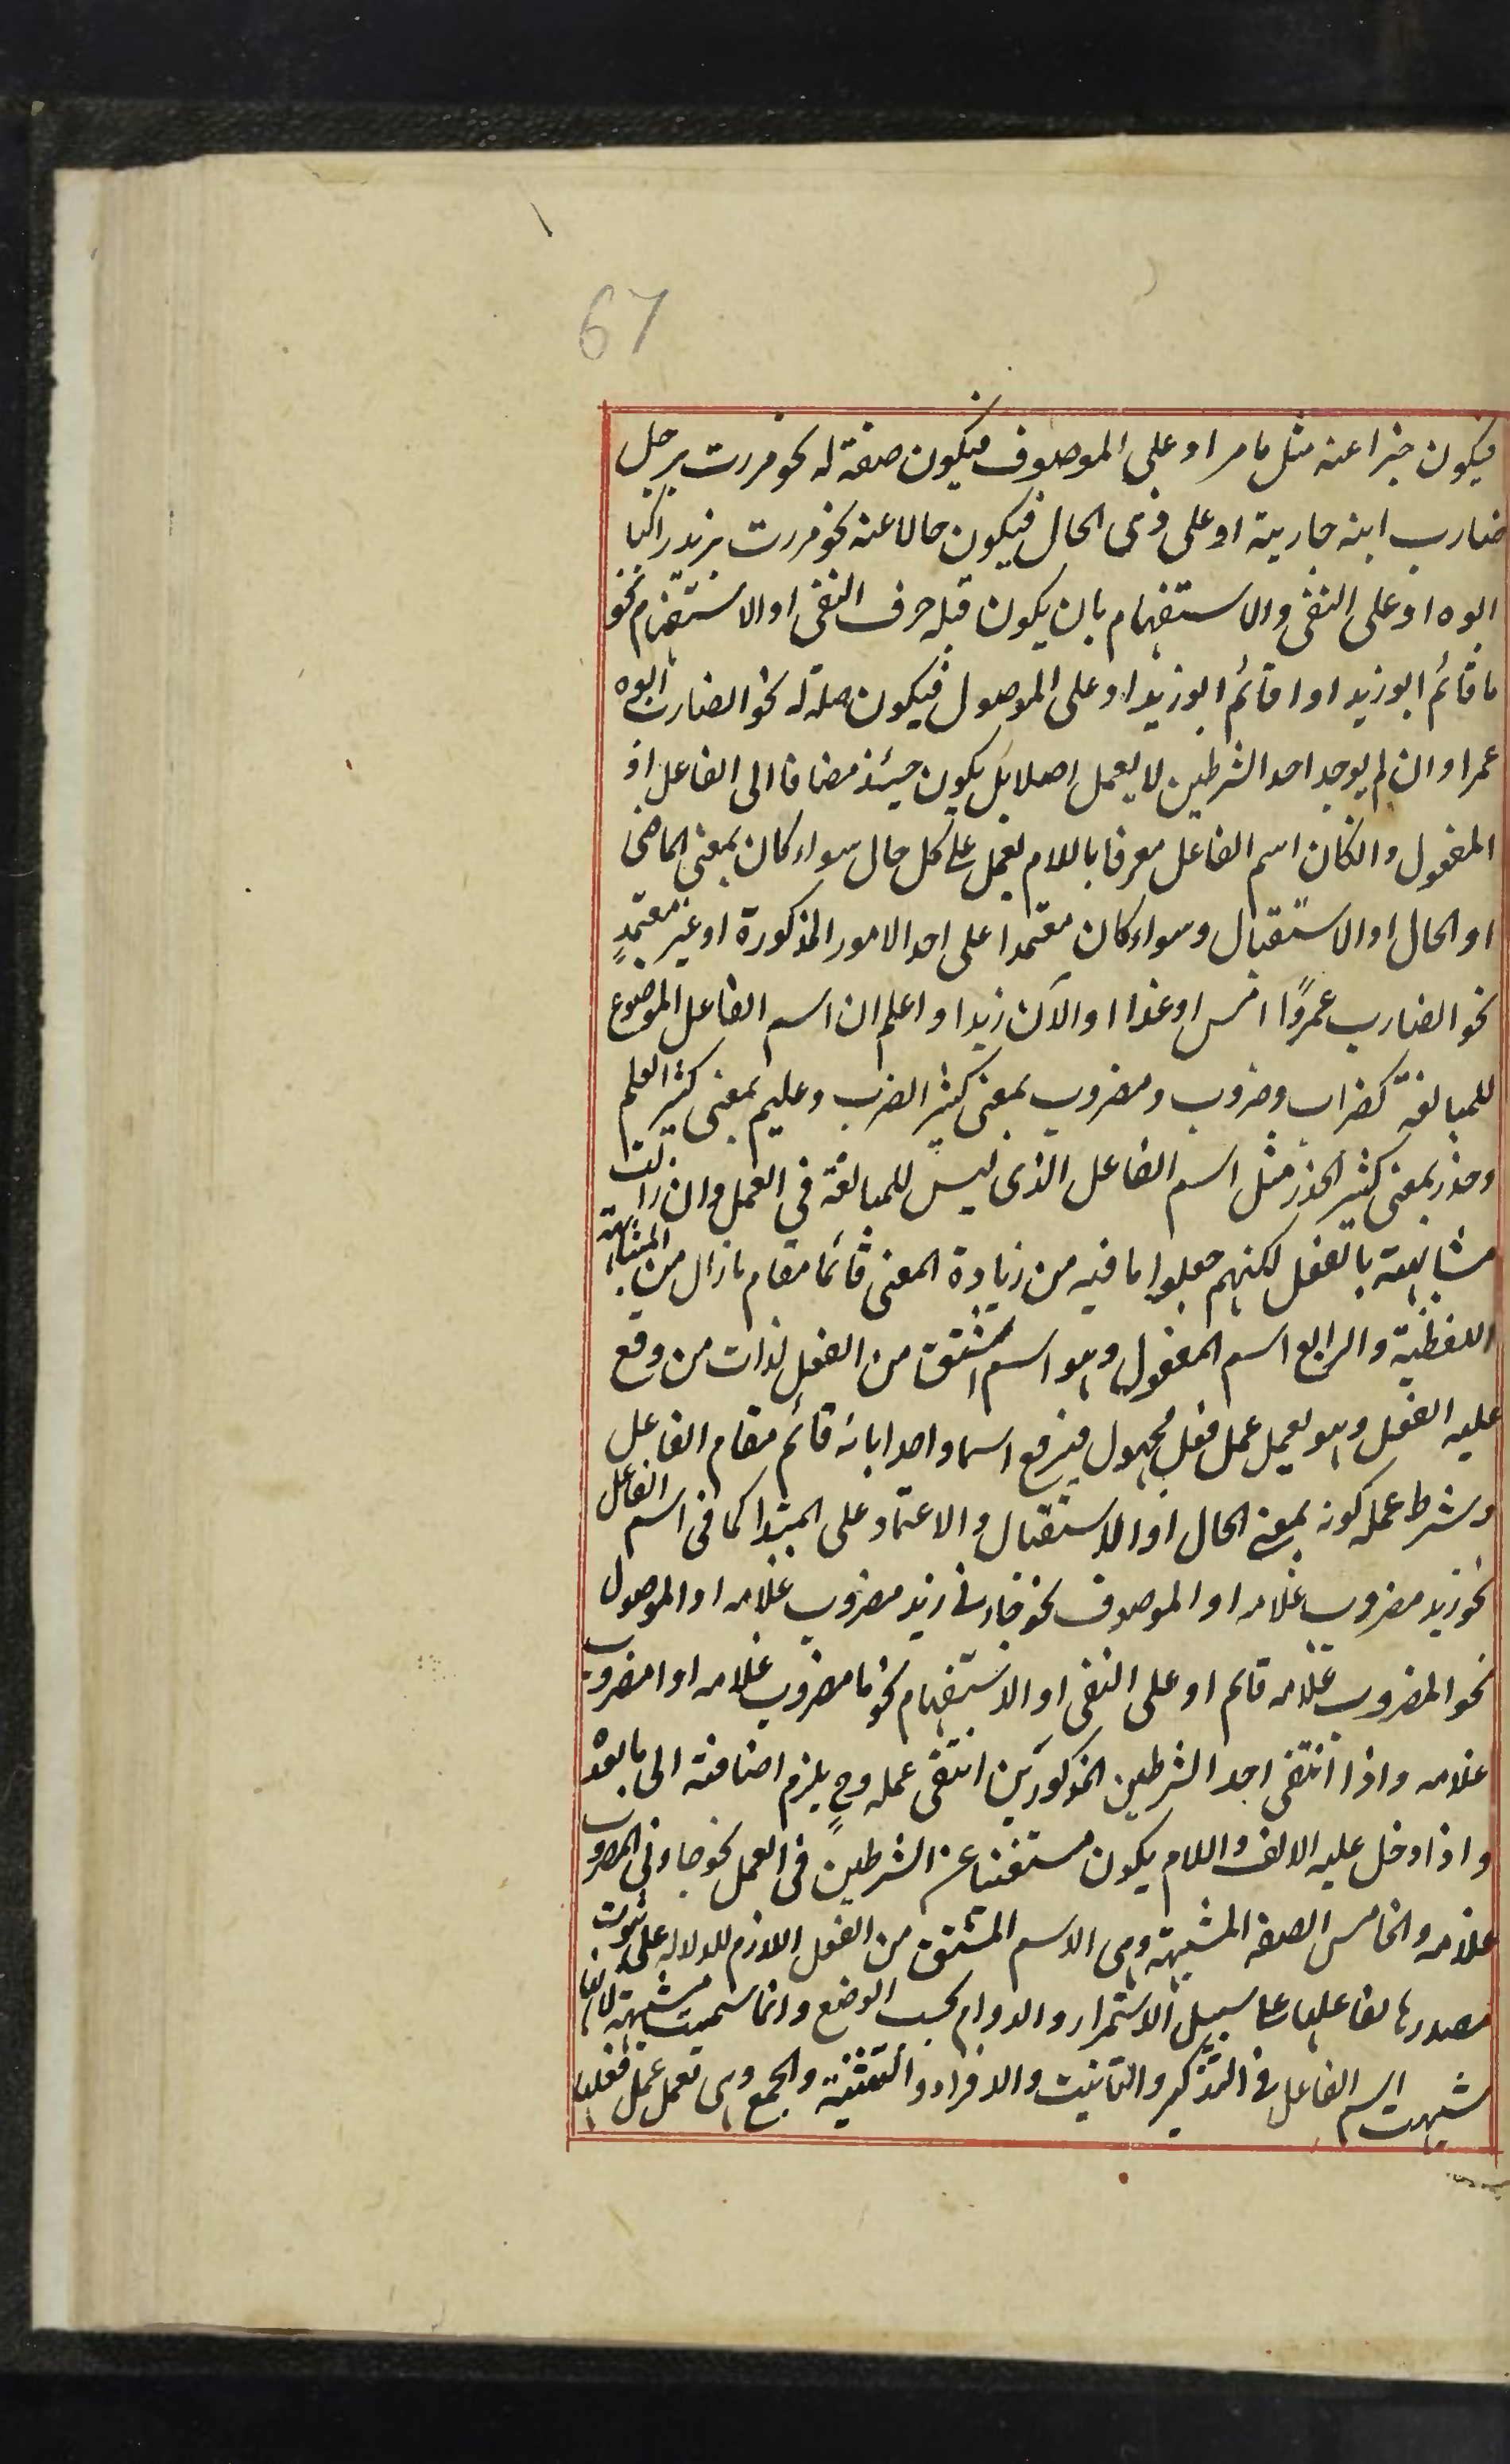 67
فيكون خبرا عنه مثل ما مر او على الموصوف فيكون صفة له نحو مررت برجل
ضارب ابنه جارية او على ذى الحال فيكون حالا عنه نحو مررت بزيد راكبا
ابوه او على النفى والاستفهام بان يكون قبله حرف النفى او الاستفهام نحو
ما قائم ابو زيد او اقائم ابو زيد او على الموصول فيكون صلة له نحو الضارب ابوه
عمرا وان لم يوجد احد الشرطين لا يعمل اصلا بل يكون حينئذ مضافا الى الفاعل او
المفعول وانكان اسم الفاعل معرفا باللام يعمل على كل حال سواء كان بمعنى الماضى
او الحال او الاستقبال وسواء كان معتمدا على احد الامور المذكورة او غير معتمدٍ
نحو الضارب عمروًا امس او غدا او الآن زيد واعلم ان اسم الفاعل الموضوع
للمبالغة كضراب وضروب ومضروب بمعنى كثير الضرب وعليم بمعنى كثير العلم
وحذر بمعنى كثير الحذر مثل اسم الفاعل الذى ليس للمبالغة في العمل وان زالت
مشابهته بالفعل لكنهم جعلوا ما فيه من زيادة المعنى قائما مقام ما زال من المشابهة
اللفظية والرابع اسم المفعول وهو اسم اشتق من الفعل لذات من وقع
عليه الفعل وهو يعمل عمل فعل مجهول فيرفع اسما واحدا بانه قائم مقام الفاعل
وشرط عمله كونه بمعنى الحال او الاستقبال والاعتماد على المبتدا كما فى اسم الفاعل
نحو زيد مضروب غلامه او الموصوف نحو جاءنى زيد مضروب غلامه او الموصول
نحو المضروب غلامه قائم او على النفى او الاستفهام نحو ما مضروب غلامه او امضروب
غلامه واذا انتفى احد الشرطين المذكورين انتفى عمله وح يلزم اضافته الى ما بعده
واذا دخل عليه الالف واللام يكون مستغنيا عن الشرطين فى العمل نحو جاءنى المضروب
غلامه والخامس الصفة المشبهة وهى الاسم المشتق من الفعل اللازم للدلالة على ثبوت
مصدرها لفاعلها على سبيل الاستمرار والدوام بحسب الوضع وانما سميت مشبهة لانها
شبهت اسم الفاعل فى التذكير والتانيث والافراد والتثنية والجمع وهى تعمل عمل فعلها